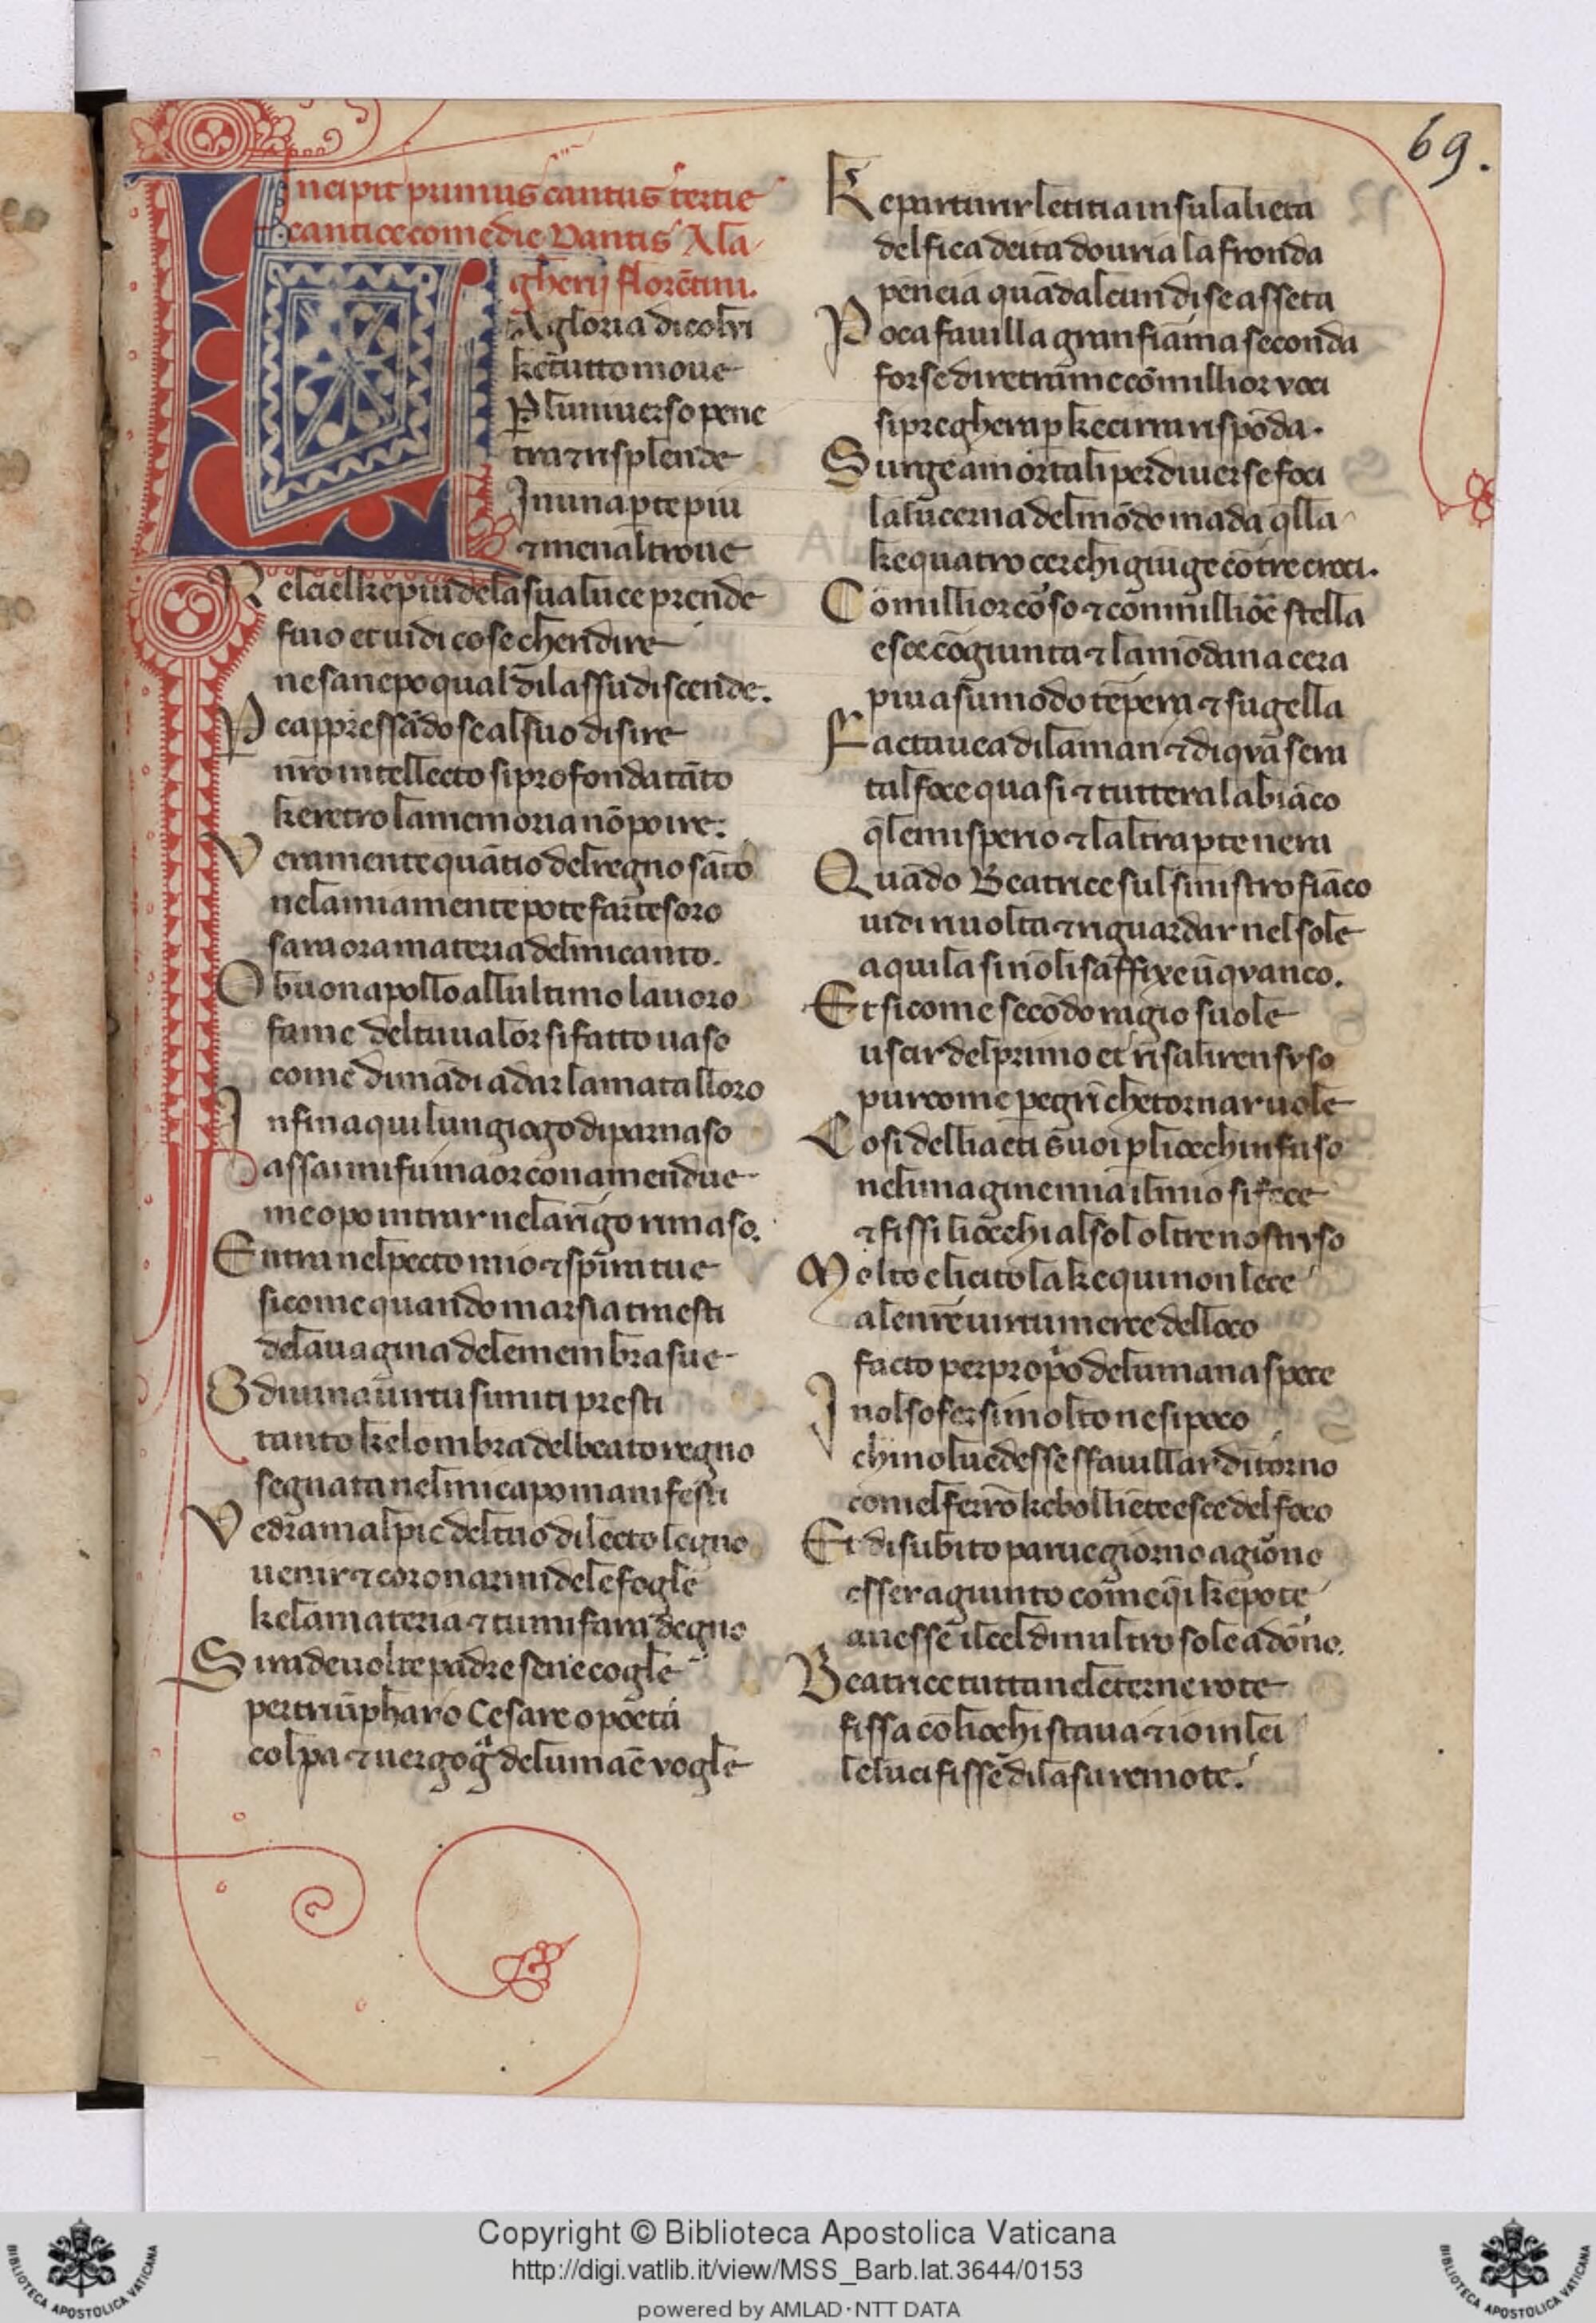 69.
Incipit primus cantus tertie
cantice comedie Dantis Ala
gherij florētini.
LA gloria di colvi
ke tutto moue
ꝑ luniuerso pene
tra ⁊ risplende
In una ꝑte piu
⁊ men altroue
Nel ciel ke piu dela sua luce prende
fu io et uidi cose che ridire
ne sa ne po qual di lassu discende.
Pe appressādo se al suo disire
nr̄o intellecto si profonda tāto
ke retro la memoria nō po ire.
Veramente quātio del regno sāto
nela mia mente pote far tesoro
sara ora materia del mi canto.
O buon apollo allultimo lauoro
fa me del tuo ualor si fatto uaso
come dimādi a dar lamata lloro
Infin a qui lun giogo di parnaso
assai mi fu ma or con amendue
me opo intrar nelarīgo rimaso.
Entra nel pecto mio ⁊ spira tue
si come quando marsia traesti
dela uagina dele membra sue
O diuina uirtu si mi ti presti
tanto ke lombra del beato regno
segnata nel mi capo manifesti
Vedrami al pie del tuo dilecto legno
uenir ⁊ coronarmi dele fogle
ke la materia ⁊ tu mi farai degno
Si rade uolte padre sene cogle
per triūphar o Cesare o poeta
colpa ⁊ uergog̃ del umāe vogle
Ke parturir letitia in su la lieta
delfica deita douria la fronda
peneia quādalcun di se asseta
Poca fauilla gran fiāma seconda
forse diretro a me cō millior voci
si preghera ꝑ ke cirra rispōda.
Surge a mortali per diuerse foci
la lucerna del mōdo ma da q̄lla
ke quatro cerchi giūge cō tre croci.
Cō millior cōso ⁊ con millior̄ stella
esce cōgiunta ⁊ la mōdana cera
piu a su modo tēpera ⁊ sugella
Facta uea di la man ⁊ di qva sera
tal foce quasi ⁊ tutto era la biāco
q̄lemisperio ⁊ laltra ꝑte nera
Quādo Beatrice sul sinistro fiāco
uidi riuolta ⁊ riguardar nel sole
aquila si nō li saffixe ūqvanco.
Et si come secōdo ragio suole
uscir del primo et risalire n svso
pur come pegrī che tornar uole
Cosi dellacto suo ꝑ liocchi infuso
nelimagine mia il mio si fece
⁊ fissi liocchi al sol oltre nostrvso
Molto e licito la ke qui non lece
ale nr̄e uirtu merce del loco
facto per prop̄o del umana spece
I nol soffersi molto ne si poco
chi nol uedesse sfauillar ditorno
comel ferrō ke bolliēte esce del foco
Et di subito parue giorno a giōno
esser agiunto come q̄i ke pote
auesse il ciel dun altro sole adōno.
Beatrice tutta ne leterne rote
fissa cō liocchi staua ⁊ io in lei
le luci fisse di la su remote.
Copyright © Biblioteca Apostolica Vaticana
http://digi.vatlib.it/view/MSS_Barb.lat.3644/0153
powered by AMLAD·NTT DATA
BIBLIOTECA APOSTOLICA VATICANA
BIBLIOTECA APOSTOLICA VATICANA